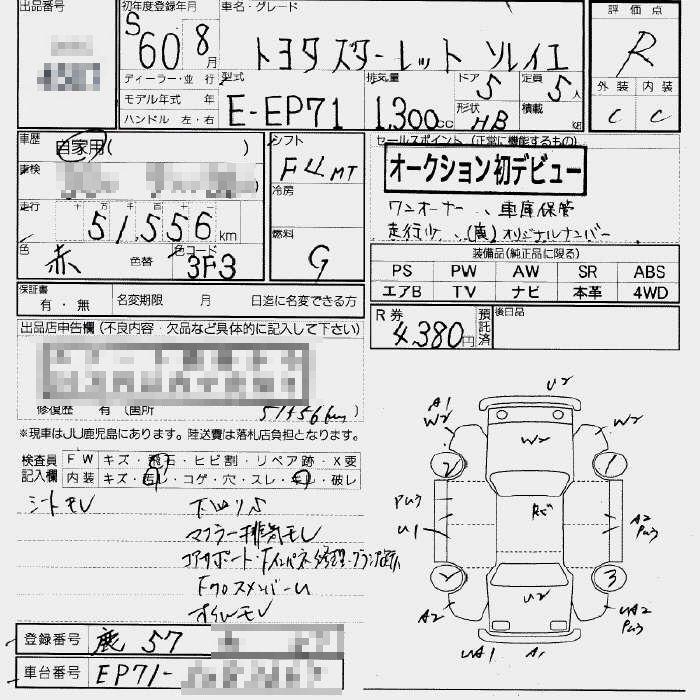 出品番号
初年度登録年月
S60 8月
車名・グレード
トヨタ スターレット ソレイユ
評価点
R
外装 内装
C C
ディーラー・並行
モデル年式 年
ハンドル 左・右
型式
E-EP71
排気量
1,300cc
ドア
5
形状
HB
定員
5人
積載
kg
車歴
自家用( )
車検
走行
十 万 千 百 十 一
51,556km
色
赤
色替
色コード
3F3
シフト
F4MT
冷房
燃料
G
セールスポイント (正常に機能するもの)
オークション初デビュー
ワンオーナー、車庫保管
走行少、(鹿)オリジナルナンバー
装備品(純正品に限る)
PS PW AW SR ABS
エアB TV ナビ 本革 4WD
保証書
有・無
名変期限 月 日迄に名変できる方
R券
4,380円
預託済
後日品
出品店申告欄(不良内容・欠品など具体的に記入して下さい)
修復歴 有 (箇所
51556km
※現車はJU鹿児島にあります。陸送費は落札店負担となります。
検査員記入欄
FW キズ・飛石・ヒビ割・リペア跡・X要
内装 キズ・汚レ・コゲ・穴・スレ・キレ・破レ
シートモレ
下廻りS
マフラー排気モレ
コアサポート・Fインパネ修理・
FクロスメンバーU
オイルモレ
登録番号 鹿 57
車台番号 EP71-
U2
A1
W2
W2
W2
2
1
Pム3
U1
A2
Pム3
2
3
U2
A2
UA2
Pム3
UA1
A1